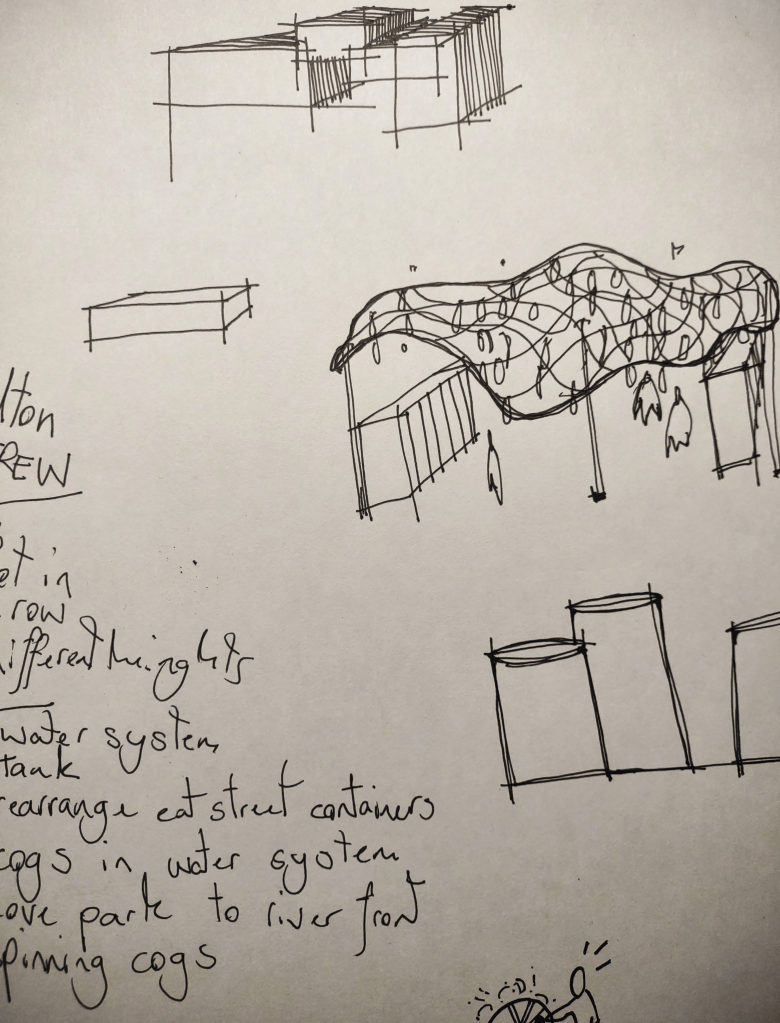 lton
REW
et in
row
ifferent hieghts
water system
tank
rearrange eat street containers
cogs in water system
ove park to river front
pinning cogs